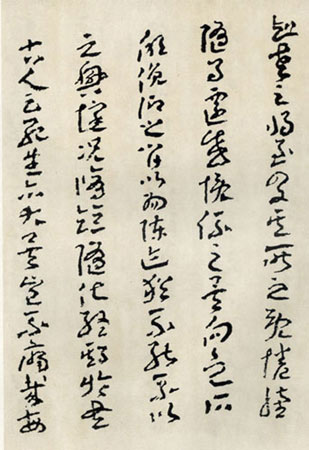 知老之將至及其所之既惓情
隨事遷感慨係之矣向之所
欣俛仰之間以為陳迹猶不能不以
之興懷況脩短隨化終期於盡
古人云死生亦大矣豈不痛哉每